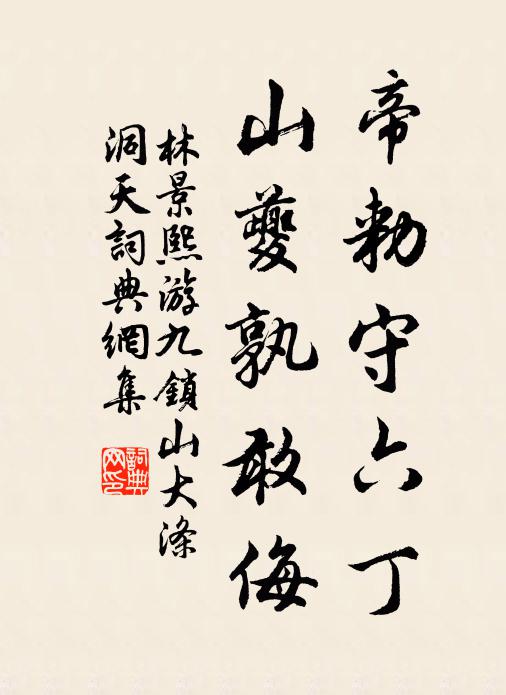 帝勅守六丁
山夔孰敢侮
林景熙游九鎖山大滌
洞天詞典網集
詞典网印